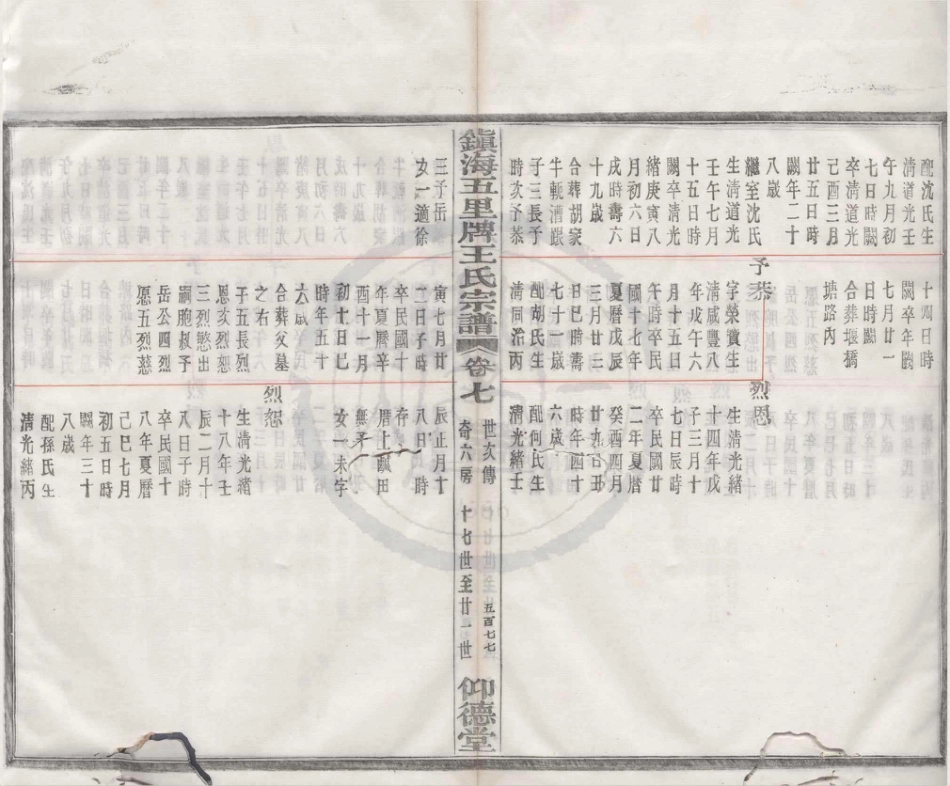 配沈氏生
清道光壬
午九月初
七日時闕
卒清道光
己酉三月
廿五日時
闕年二十
八歲
繼室沈氏
生清道光
壬午七月
十五日時
闕卒清光
緒庚寅八
月初六日
戌時壽六
十九歲
合葬胡家
牛軛漕
子三長予
時次予恭
三予岳
女一適徐
十四日時
闕卒年闕
七月廿一
日時闕
合葬堰橋
塘路內
予恭
字榮賞生
清咸豐八
年戊午六
月十五日
午時卒民
國十七年
夏曆戊辰
三月廿三
日巳時壽
七十一歲
配胡氏生
清同治丙
寅七月廿
二日子時
卒民國十
年夏曆辛
酉十一月
初十日巳
時年五十
六歲
合葬父墓
之右
子五長烈
恩次烈恕
三烈慾出
嗣胞叔予
岳公四烈
愿五烈慈
烈恩
生清光緒
十四年戊
子三月十
七日辰時
卒民國廿
二年夏曆
癸酉四月
廿九日丑
時年四十
六歲
配何氏生
清光緒壬
辰正月十
八日 時
存
厝上 田
無子
女一未字
烈恕
生清光緒
十八年壬
辰二月十
八日子時
卒民國十
八年夏曆
己巳七月
初五日時
闕年三十
八歲
配孫氏生
清光緒丙
鎮海五里牌王氏宗譜 卷七
世次傳
奇六房
十七世至廿一世
五百七七
仰德堂